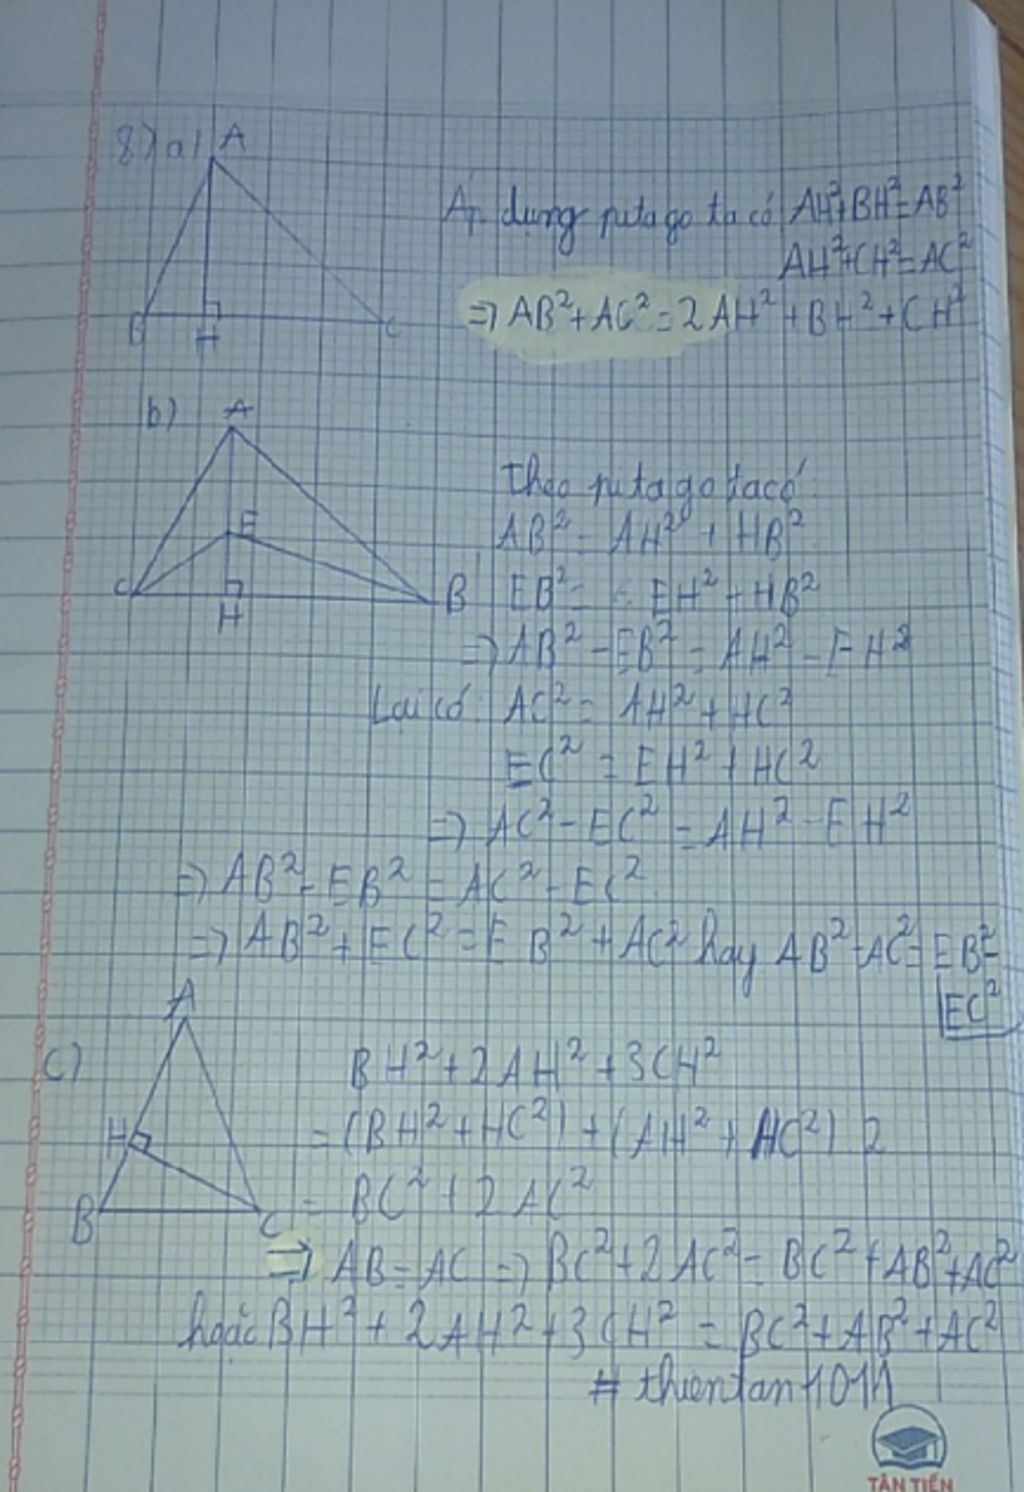 8) a) A
Áp dụng pitago ta có AH²+BH²=AB²
AH²+CH²=AC²
⇒ AB²+AC²=2AH²+BH²+CH²
B H C
b) A
Theo pitago ta có
AB² = AH² + HB²
E
EB² = EH² + HB²
C H B
⇒ AB² - EB² = AH² - EH²
Lại có AC² = AH² + HC²
EC² = EH² + HC²
⇒ AC² - EC² = AH² - EH²
⇒ AB² - EB² = AC² - EC²
⇒ AB² + EC² = EB² + AC² hay AB² - AC² = EB² -
EC²
A
c) BH² + 2AH² + 3CH²
H = (BH² + HC²) + (AH² + HC²) 2
B C = BC² + 2AC²
⇒ AB = AC ⇒ BC² + 2AC² = BC² + AB² + AC²
hoặc BH² + 2AH² + 3CH² = BC² + AB² + AC²
# thientan1011
TÂN TIẾN